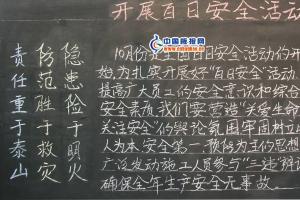 开展百日安全活动
中国板报网
隐患险于明火
防范胜于救灾
责任重于泰山
10月份安全百日安全活动的开
始,为扎实开展好“百日安全”活动
提高广大员工的安全意识和综合
安全素质,我们要营造“关爱生命
关注安全”的舆论氛围牢固树立
人为本安全第一预防为主的思想
广泛发动施工人员参与“三违”辩论
确保全年生产安全无事故